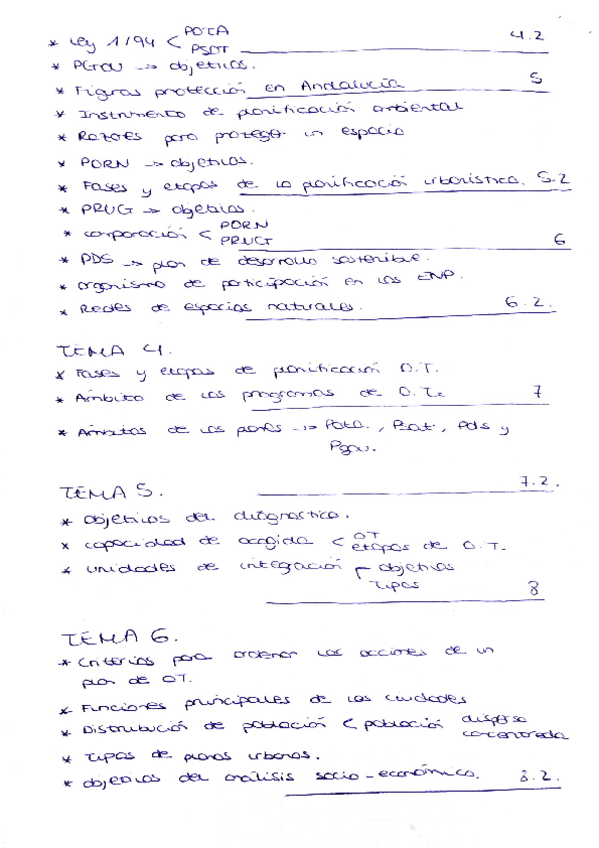 * Ley 1/94 < POTA
PSOT 4.2
* PGOU -> objetivos.
* Figuras protección en Andalucía 5
* Instrumento de planificación ambiental
* Razones para proteger un espacio
* PORN -> objetivos.
* Fases y etapas de la planificación urbanística. 5.2
* PRUG -> objetivos.
* comparación < PORN
PRUG 6
* PDS -> plan de desarrollo sostenible.
* organismo de participación en los ENP.
* Redes de espacios naturales. 6.2.
TEMA 4.
* Fases y etapas de planificación O.T.
* Ámbito de los programas de O.T. 7
* Ámbitos de los planes -> Pota, Psot, Pds y
Pgou.
TEMA 5. 7.2.
* objetivos del diagnostico.
* capacidad de acogida < OT
etapas de O.T.
* unidades de integración objetivos
tipos 8
TEMA 6.
* Criterios para ordenar las acciones de un
plan de OT.
* Funciones principales de las ciudades
* Distribución de población < población dispersa
concentrada
* tipos de planos urbanos.
* objetivos del análisis socio-económico. 8.2.